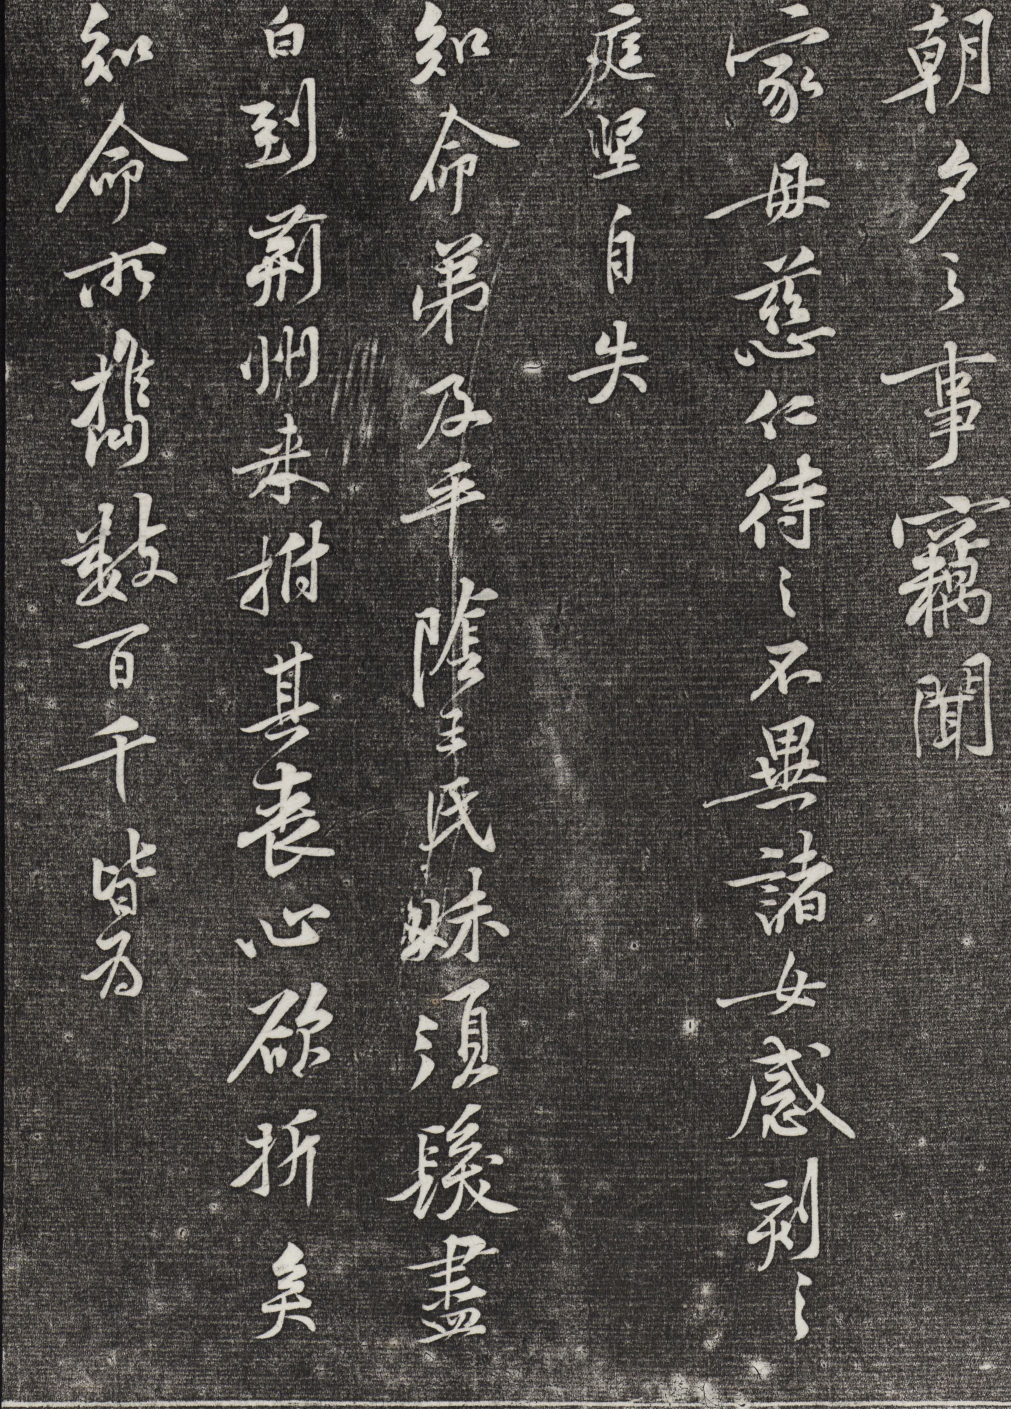 朝夕之事竊聞
家母慈仁待之不異諸女感刻之
庭堅自失
知命弟及平陰主氏妹須髮盡
白到荊州來拊其喪心欲折矣
知命所攜數百千皆為